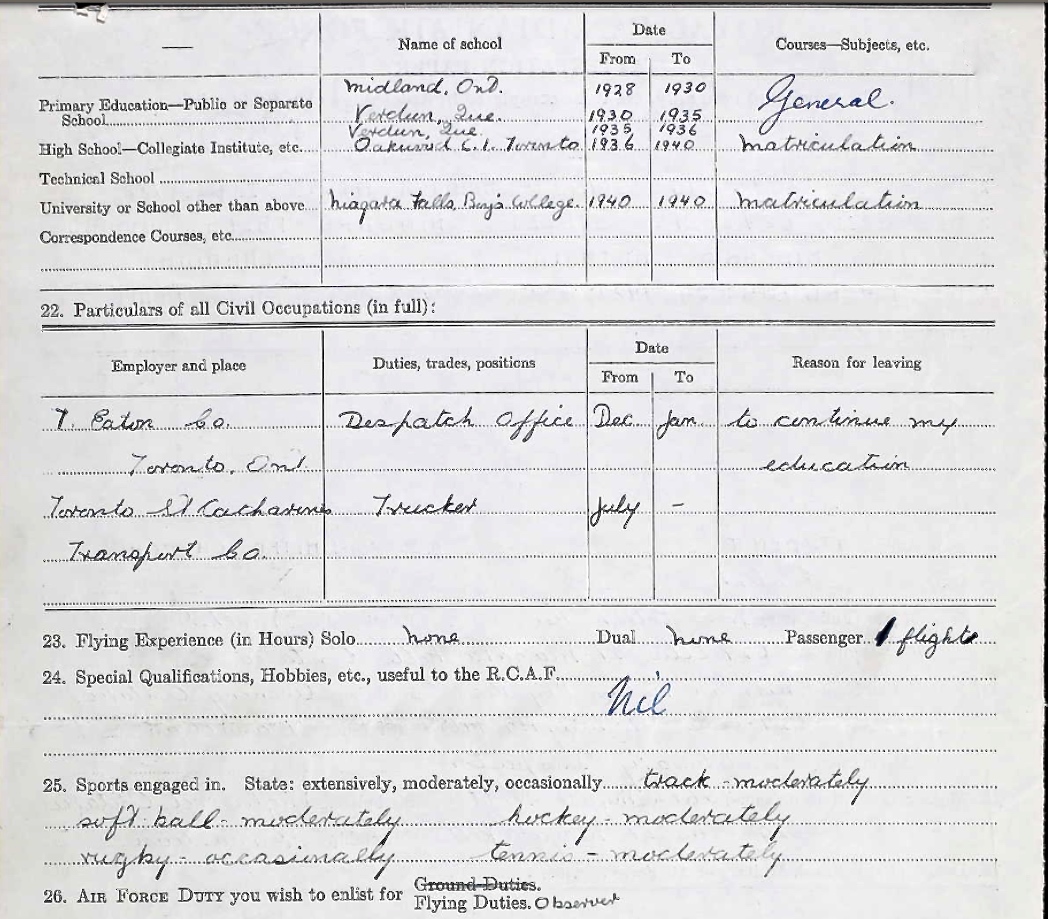 Name of school Date Courses—Subjects, etc.
From To
Midland, Ont. 1928 1930 General.
Primary Education—Public or Separate
School Verdun, Que. 1930 1935
Verdun, Que. 1935 1936
High School—Collegiate Institute, etc. Oakwood C.I. Toronto 1936 1940 Matriculation
Technical School
University or School other than above Niagara Falls Boy's College. 1940 1940 Matriculation
Correspondence Courses, etc.
22. Particulars of all Civil Occupations (in full):
Employer and place Duties, trades, positions Date Reason for leaving
From To
T. Eaton Co. Despatch Office Dec. Jan. to continue my
Toronto, Ont. education
Toronto St Catharines Trucker July -
Transport Co.
23. Flying Experience (in Hours) Solo none Dual none Passenger 1 flight
24. Special Qualifications, Hobbies, etc., useful to the R.C.A.F.
Nil
25. Sports engaged in. State: extensively, moderately, occasionally track - moderately
soft ball - moderately hockey - moderately
rugby - occasionally tennis - moderately
26. AIR FORCE DUTY you wish to enlist for Ground Duties.
Flying Duties. Observer